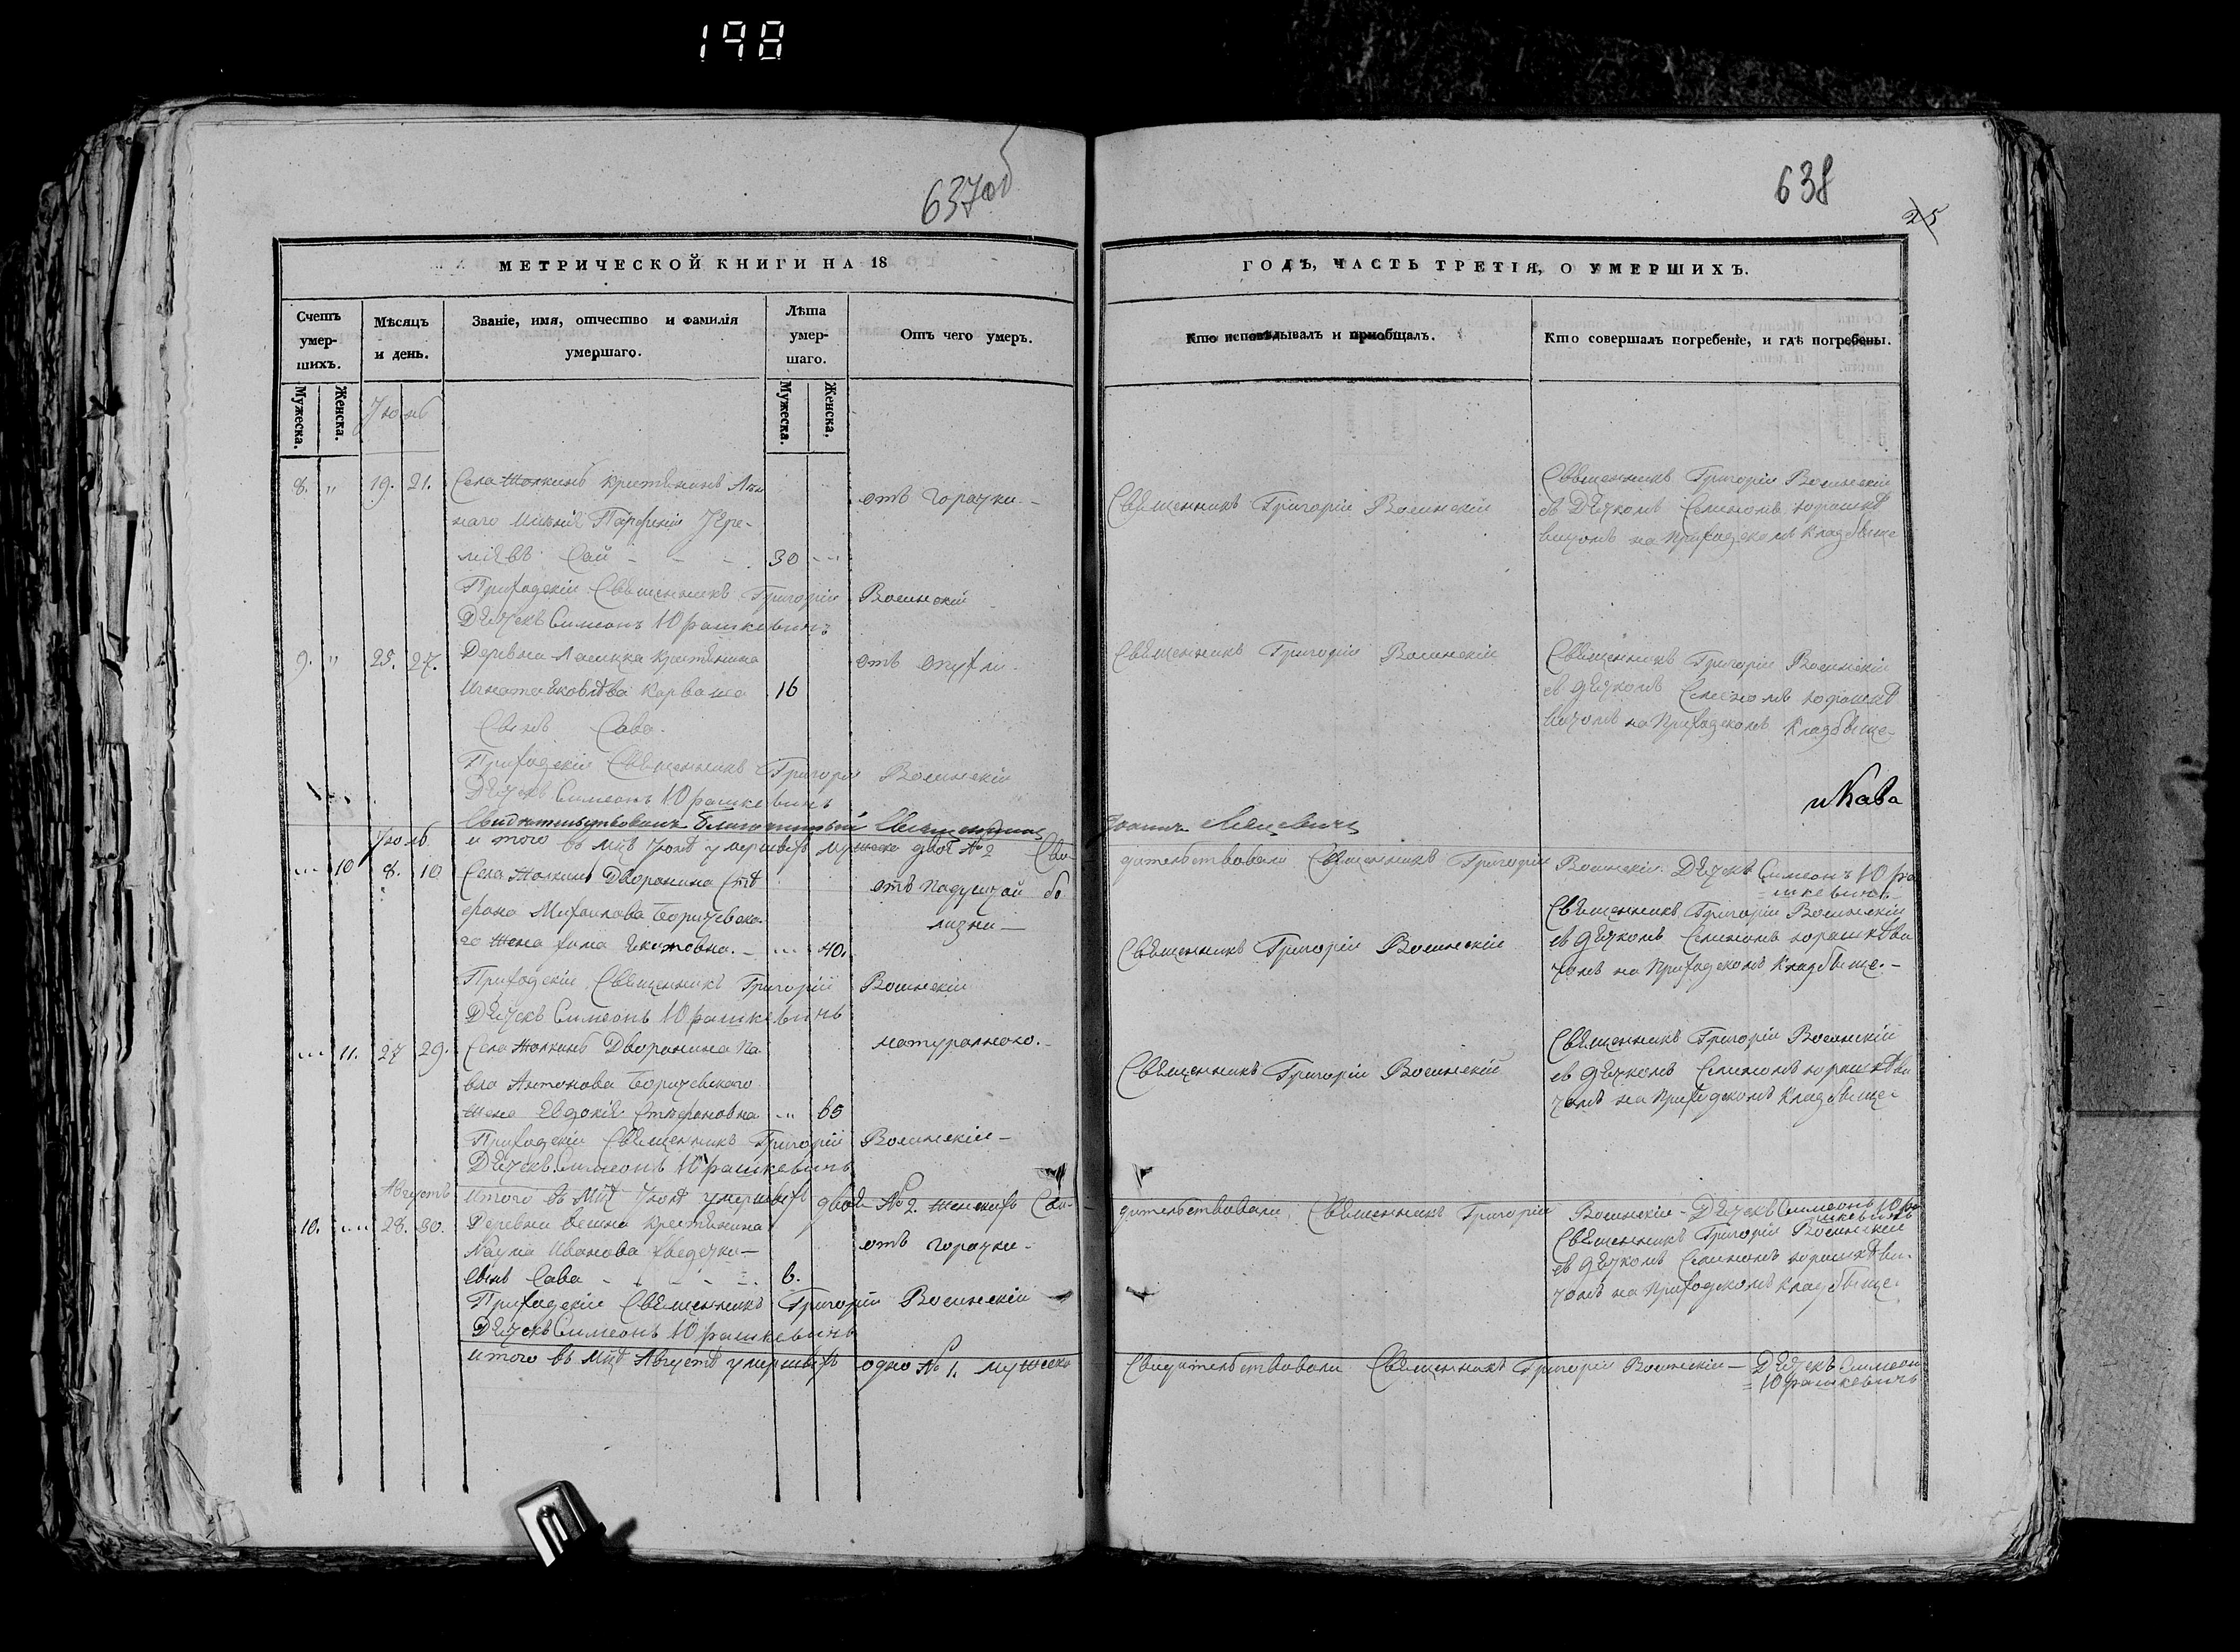 198
637об
638
25
МЕТРИЧЕСКОЙ КНИГИ НА 18
ГОДЪ, ЧАСТЬ ТРЕТІЯ, О УМЕРШИХЪ.
Счетъ умер-шихъ.
Мѣсяцъ и день.
Званіе, имя, отчество и фамилія умершаго.
Лѣта умер-шаго.
Отъ чего умеръ.
Кто исповѣдывалъ и приобщалъ.
Кто совершалъ погребеніе, и гдѣ погребены.
Мужеска.
Женска.
Мужеска.
Женска.
Іюнь
8. " 19. 21.
Села Жолкинь крестьянинъ
отъ горячки.-
Священникъ Григорій Волинскій
Священникъ Григорій Волинскій
съ Дѣячкомъ Симіономъ Юрашке
вичомъ на Приходскомъ Кладбище
Парфеній Ере-
30
Приходскій Священникъ Григорій Волинскій
Дѣячекъ Симеонъ Юрашкевичъ
9. " 25. 27.
Деревни крестьянина
16
Сынъ Сава.
отъ опухли.
Священникъ Григорій Волинскій
Священникъ Григорій Волинскій
съ дѣячкомъ Симіономъ Юрашке
вичомъ на Приходскомъ Кладбище-
Приходскій Священникъ Григорій Волинскій
Дѣячекъ Симеонъ Юрашкевичъ
Свидѣтельствовалъ Благочинный Священникъ
Іоаннъ
Іюль
итого въ мцѣ Іюнѣ умершихъ мужеска двоѣ № 2 Сви
дительствовали Священникъ Григорій Волинскій Дѣячекъ Симеонъ Юра
шкевичъ.
10 8. 10
Села Жолкинь Дворянина Сте
фана Михаилова Боричевска-
го жена
40.
отъ падучай бо
лизни-
Священникъ Григорій Волинскій
Священникъ Григорій Волинскій
съ дѣячкомъ Симіономъ Юрашкеви
чомъ на Приходскомъ Кладбище.-
Приходскій Священникъ Григорій Волинскій
Дѣячекъ Симеонъ Юрашкевичъ
11. 27 29.
Села Жолкинь Дворянина Па
вла Антонова Боричевскаго
жена Евдокія Стефановна
65
натурально.-
Священникъ Григорій Волинскій
Священникъ Григорій Волинскій
съ дѣячкомъ Симіономъ Юрашкеви
чомъ на Приходскомъ Кладбище
Приходскій Священникъ Григорій Волинскій-
Дѣячекъ Симеонъ Юрашкевичъ
Августъ
Итого въ мцѣ Іюлѣ умершихъ двоѣ № 2. женскихъ Сви-
дительствовали Священникъ Григорій Волинскій- Дѣячекъ Симеонъ Юра
шкевичъ
10. 28. 30.
Деревни крестьянина
Наума Иванова
сынъ Сава
6.
отъ горячки.
Священникъ Григорій Волинскій
съ дѣячкомъ Симіономъ Юрашкеви-
чомъ на Приходскомъ Кладбище.
Приходскій Священникъ Григорій Волинскій
Дѣячекъ Симеонъ Юрашкевичъ
итого въ мцѣ Августѣ умершихъ одно № 1. мужеско
Свидительствовали Священникъ Григорій Волинскій- Дѣячекъ Симеон
Юрашкевичъ